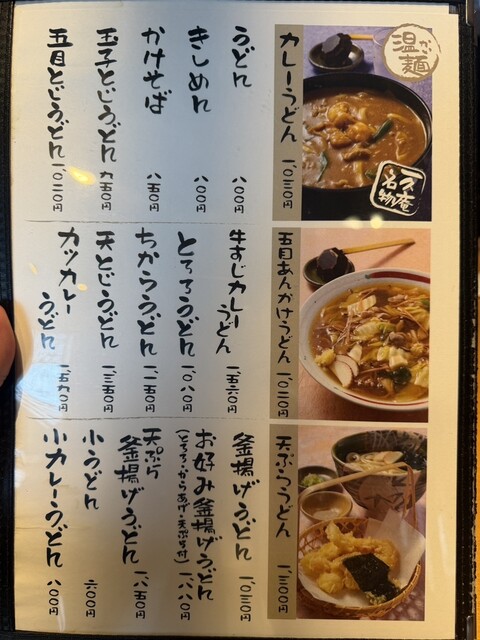 温かい麺
カレーうどん 一、〇三〇円
名物
うどん 八〇〇円
きしめん 八〇〇円
かけそば 八五〇円
玉子とじうどん 九五〇円
五目とじうどん 一、〇二〇円
五目あんかけうどん 一、〇二〇円
牛すじカレーうどん 一、五六〇円
とろろうどん 一、〇八〇円
ちからうどん 一、一五〇円
天とじうどん 一、三五〇円
カツカレーうどん 一、五九〇円
天ぷらうどん 一、三〇〇円
釜揚げうどん 一、〇三〇円
お好み釜揚げうどん
(とろろ・からあげ・天ぷら付) 一、八八〇円
天ぷら釜揚げうどん 一、八五〇円
小うどん 六〇〇円
小カレーうどん 八〇〇円